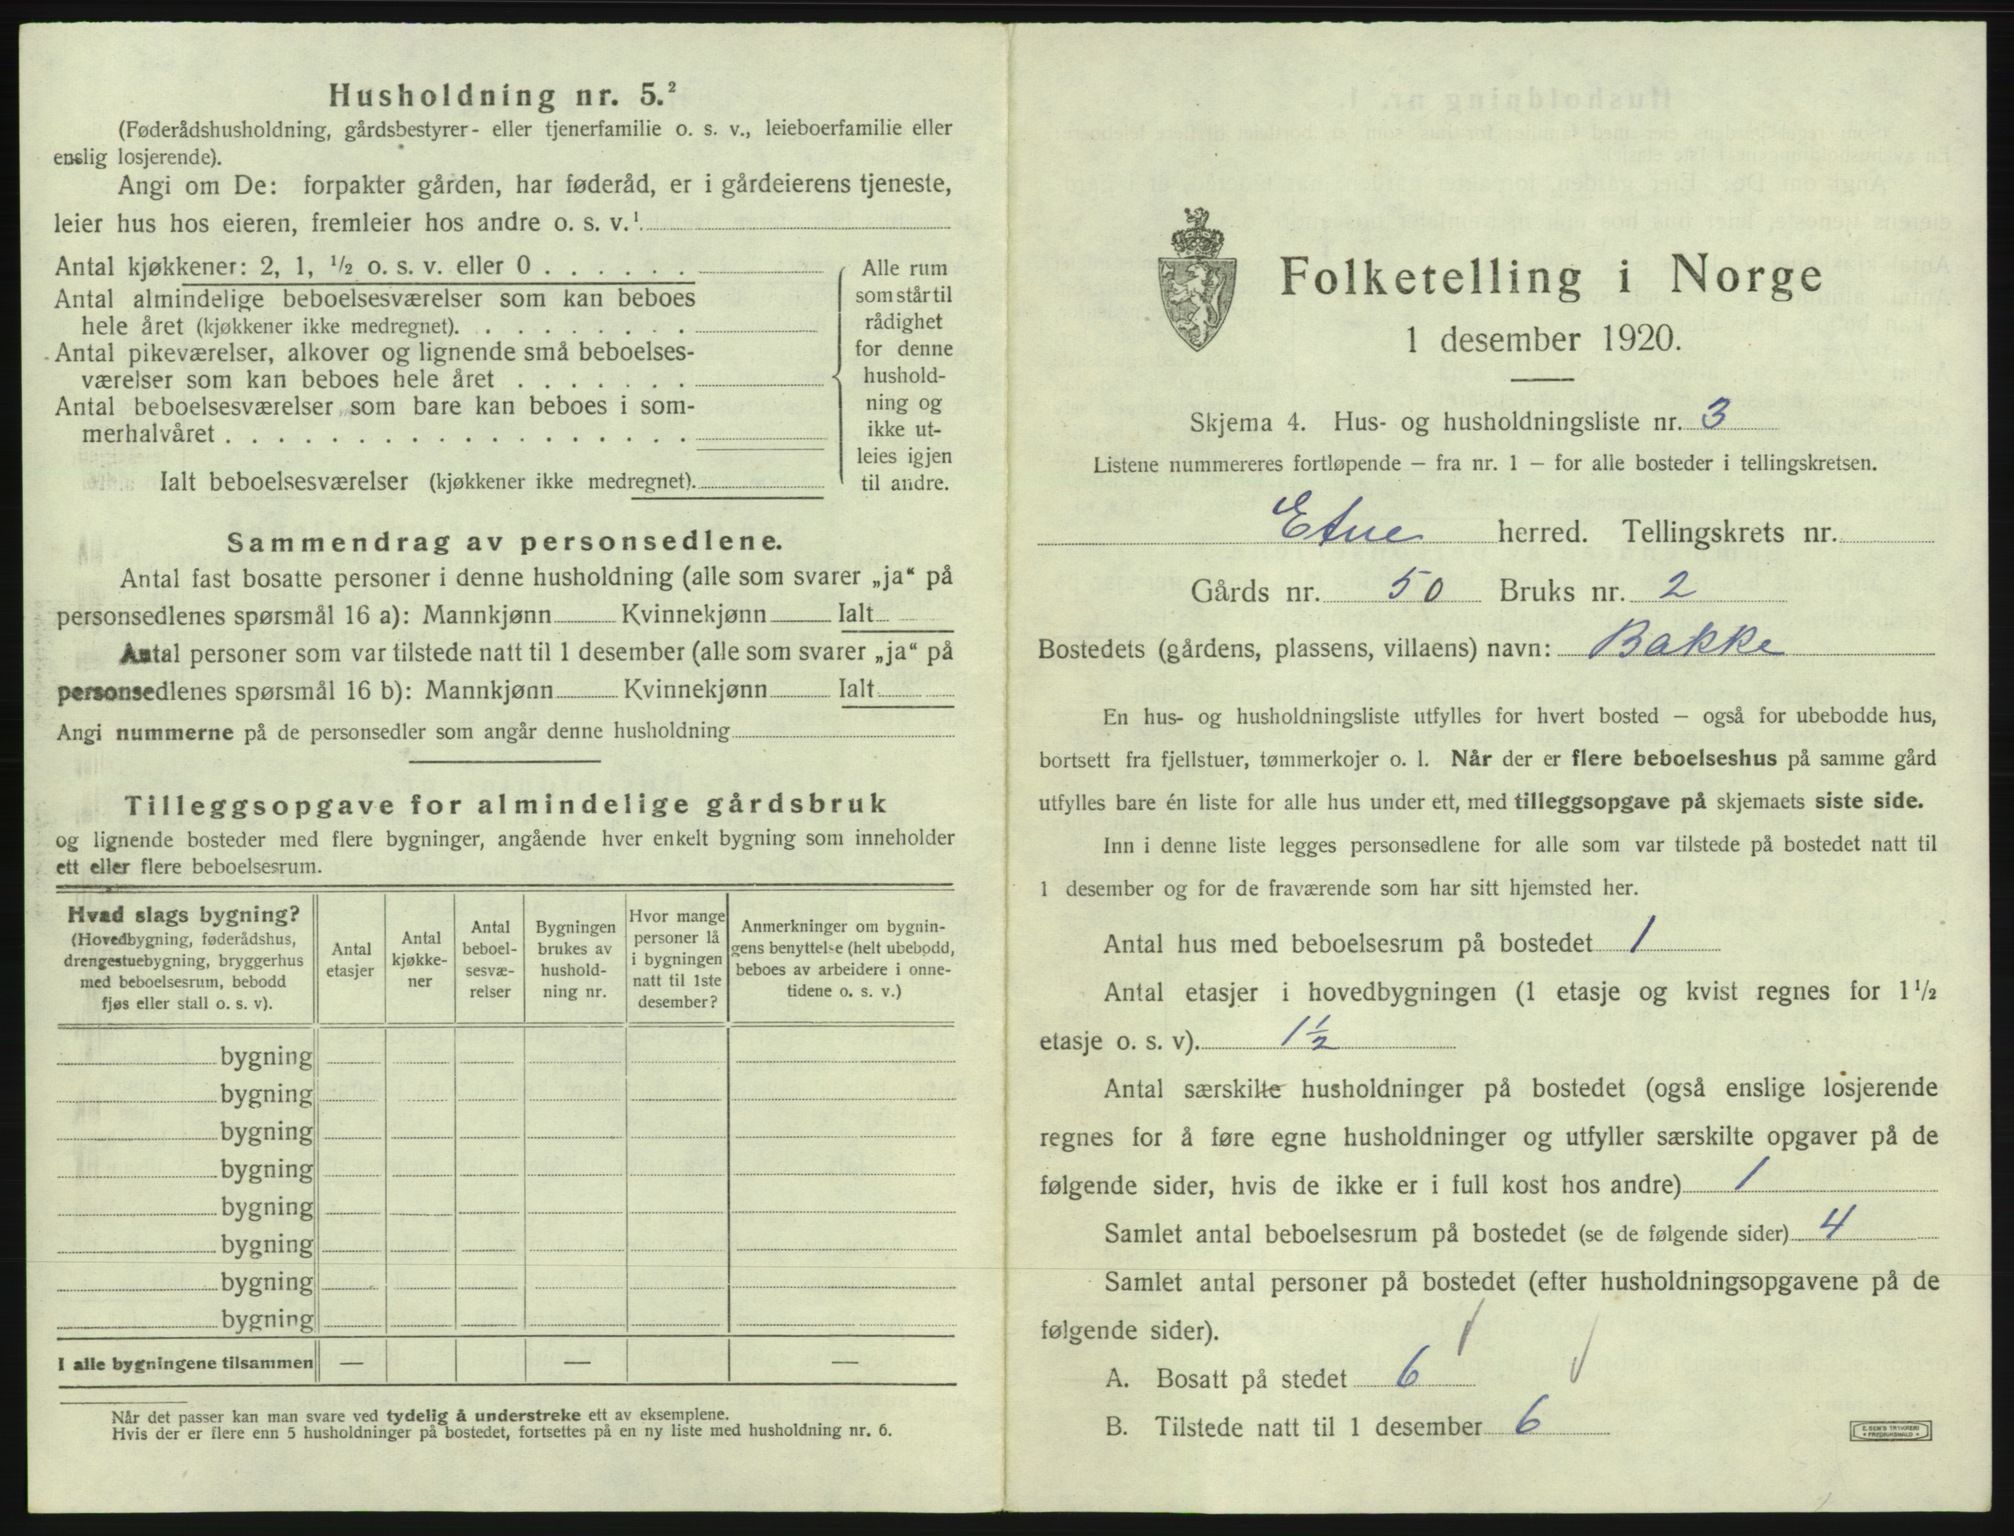 Husholdning nr. 5.²
(Føderådshusholdning, gårdsbestyrer- eller tjenerfamilie o. s. v., leieboerfamilie eller
enslig losjerende).
Angi om De: forpakter gården, har føderåd, er i gårdeierens tjeneste,
leier hus hos eieren, fremleier hos andre o. s. v.¹
Antal kjøkkener: 2, 1, ½ o. s. v. eller 0 . . . . . .
Antal almindelige beboelsesværelser som kan beboes
hele året (kjøkkener ikke medregnet). . . . . . . . .
Antal pikeværelser, alkover og lignende små beboelses-
værelser som kan beboes hele året . . . . . . .
Antal beboelsesværelser som bare kan beboes i som-
merhalvåret . . . . . . . . . . . . . . . . . .
Ialt beboelsesværelser (kjøkkener ikke medregnet).
Alle rum
som står til
rådighet
for denne
hushold-
ning og
ikke ut-
leies igjen
til andre.
Sammendrag av personsedlene.
Antal fast bosatte personer i denne husholdning (alle som svarer „ja“ på
personsedlenes spørsmål 16 a): Mannkjønn Kvinnekjønn Ialt
Antal personer som var tilstede natt til 1 desember (alle som svarer „ja“ på
personsedlenes spørsmål 16 b): Mannkjønn Kvinnekjønn Ialt
Angi nummerne på de personsedler som angår denne husholdning
Tilleggsopgave for almindelige gårdsbruk
og lignende bosteder med flere bygninger, angående hver enkelt bygning som inneholder
ett eller flere beboelsesrum.
Hvad slags bygning?
(Hovedbygning, føderådshus,
drengestuebygning, bryggerhus
med beboelsesrum, bebodd
fjøs eller stall o. s. v).
Antal
etasjer
Antal
kjøkke-
ner
Antal
beboel-
sesvæ-
relser
Bygningen
brukes av
hushold-
ning nr.
Hvor mange
personer lå
i bygningen
natt til 1ste
desember?
Anmerkninger om bygnin-
gens benyttelse (helt ubebodd,
beboes av arbeidere i onne-
tidene o. s. v.)
bygning
bygning
bygning
bygning
bygning
bygning
bygning
bygning
I alle bygningene tilsammen — — —
Når det passer kan man svare ved tydelig å understreke ett av eksemplene.
Hvis der er flere enn 5 husholdninger på bostedet, fortsettes på en ny liste med husholdning nr. 6.
Folketelling i Norge
1 desember 1920.
Skjema 4. Hus- og husholdningsliste nr. 3
Listene nummereres fortløpende – fra nr. 1 – for alle bosteder i tellingskretsen.
Etne herred. Tellingskrets nr.
Gårds nr. 50 Bruks nr. 2
Bostedets (gårdens, plassens, villaens) navn: Bakke
En hus- og husholdningsliste utfylles for hvert bosted – også for ubebodde hus,
bortsett fra fjellstuer, tømmerkojer o. l. Når der er flere beboelseshus på samme gård
utfylles bare én liste for alle hus under ett, med tilleggsopgave på skjemaets siste side.
Inn i denne liste legges personsedlene for alle som var tilstede på bostedet natt til
1 desember og for de fraværende som har sitt hjemsted her.
Antal hus med beboelsesrum på bostedet 1
Antal etasjer i hovedbygningen (1 etasje og kvist regnes for 1½
etasje o. s. v). 1½
Antal særskilte husholdninger på bostedet (også enslige losjerende
regnes for å føre egne husholdninger og utfyller særskilte opgaver på de
følgende sider, hvis de ikke er i full kost hos andre) 1
Samlet antal beboelsesrum på bostedet (se de følgende sider) 4
Samlet antal personer på bostedet (efter husholdningsopgavene på de
følgende sider).
A. Bosatt på stedet 6
B. Tilstede natt til 1 desember 6